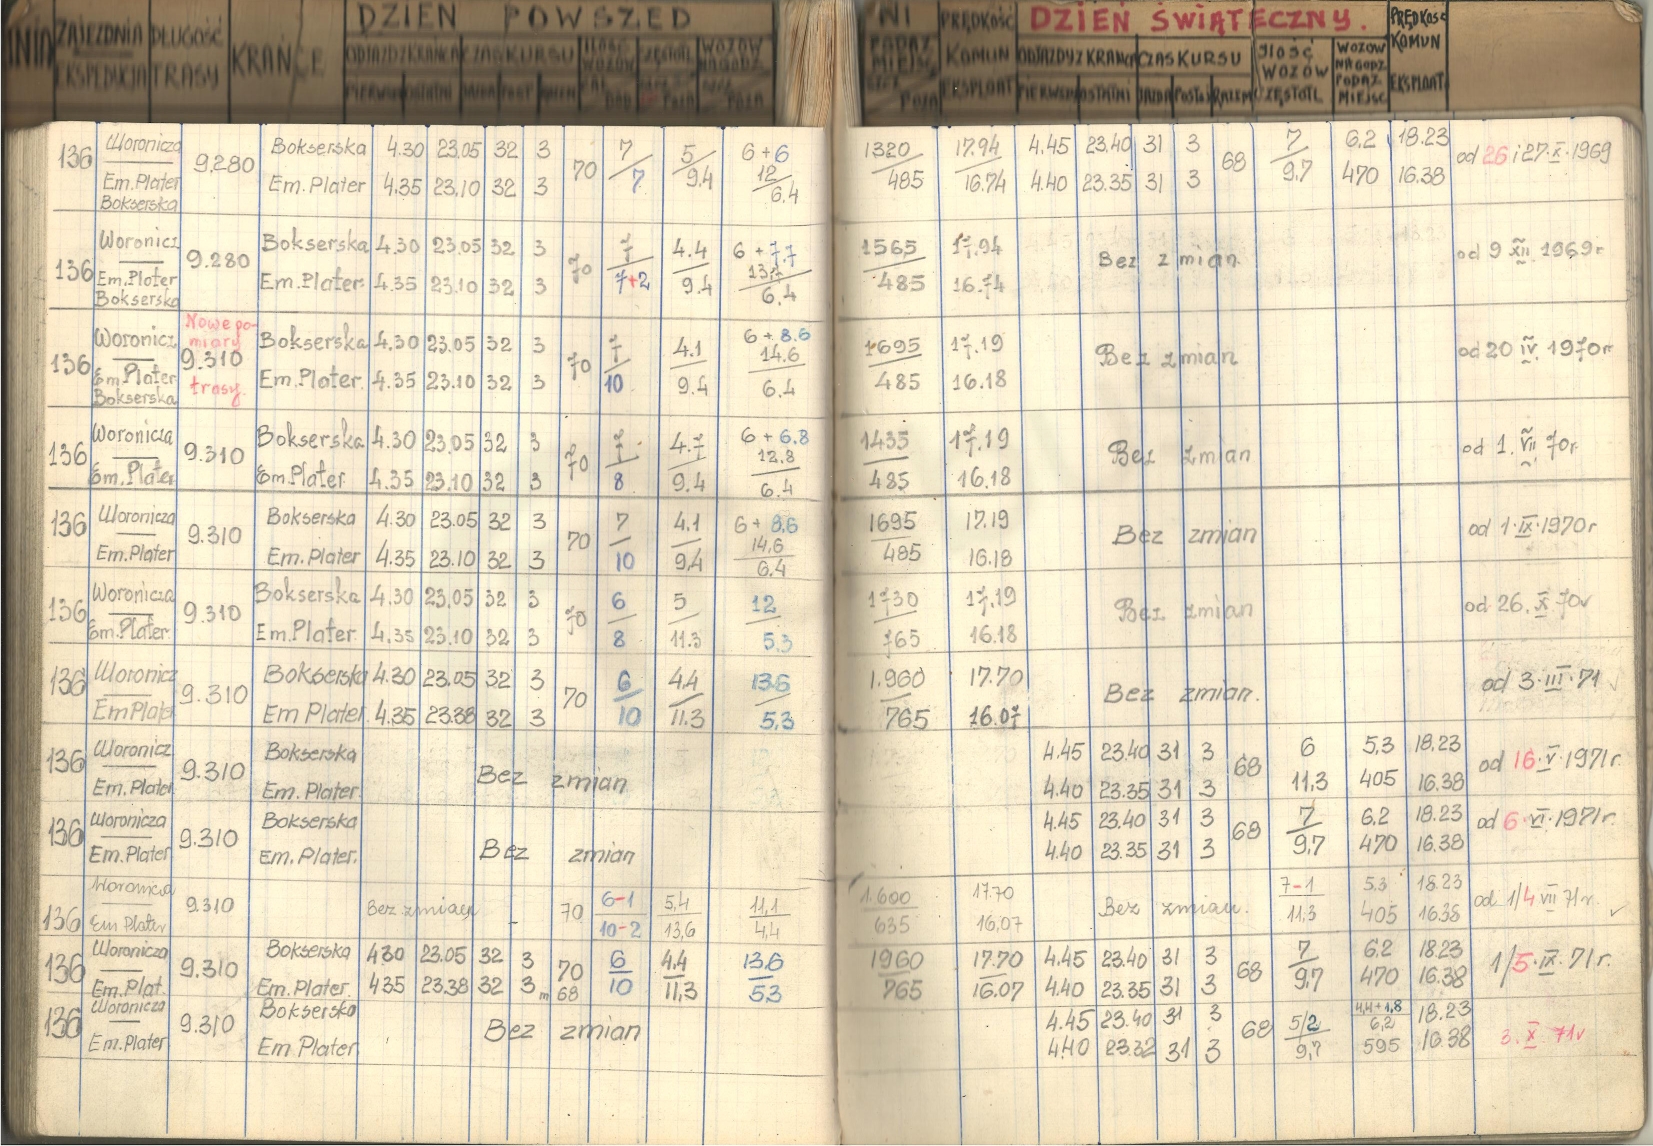 DZIEŃ POWSZED NI DZIEŃ ŚWIĄTECZNY.
ZAJEZDNIA DŁUGOŚĆ KRAŃCE ODJAZD Z KRAŃCA CZAS KURSU ILOŚĆ WOZÓW CZĘSTOTL WOZÓW NA GODZ PODAŻ MIEJSC PRĘDKOŚĆ KOMUN ODJAZDY Z KRAŃCA CZAS KURSU ILOŚĆ WOZÓW WOZÓW NA GODZ. PRĘDKOSC KOMUN
EKSPEDYCJA TRASY PIERWSZ OSTATNI JAZDA POST RAZEM EKSPLOAT PIERWSZ OSTATNI JAZDA POSTÓJ RAZEM CZĘSTOTL PODAŻ MIEJSC EKSPLOAT
136 Woronicza 9.280 Bokserska 4.30 23.05 32 3 70 7 5 6+6 1320 17.94 4.45 23.40 31 3 68 7 6.2 18.23 od 26 i 27.X.1969
Em.Plater Em.Plater 4.35 23.10 32 3 7 9.4 12 485 16.74 4.40 23.35 31 3 9,7 470 16.38
Bokserska 6.4
136 Woronicz 9.280 Bokserska 4.30 23.05 32 3 70 7 4.4 6+7,7 1565 17.94 Bez zmian od 9 XII 1969r
Em.Plater Em.Plater 4.35 23.10 32 3 7+2 9.4 13,7 485 16.74
Bokserska 6.4
Nowe pomiary trasy
136 Woronicz 9.310 Bokserska 4.30 23.05 32 3 70 7 4.1 6+8.6 1695 17.19 Bez zmian od 20 IV 1970r
Em.Plater Em.Plater. 4.35 23.10 32 3 10 9.4 14.6 485 16.18
Bokserska 6.4
136 Woronicza 9.310 Bokserska 4.30 23.05 32 3 70 7 4.7 6+6.8 1435 17.19 Bez zmian od 1. VII 70r.
Em.Plater Em.Plater 4.35 23.10 32 3 8 9.4 12.8 485 16.18
6.4
136 Woronicza 9.310 Bokserska 4.30 23.05 32 3 70 7 4.1 6+8.6 1695 17.19 Bez zmian od 1.IX.1970r
Em.Plater Em.Plater 4.35 23.10 32 3 10 9,4 14,6 485 16.18
6.4
136 Woronicza 9.310 Bokserska 4.30 23.05 32 3 70 6 5 12 1730 17.19 Bez zmian od 26. X 70r
Em.Plater. Em.Plater. 4.35 23.10 32 3 8 11.3 5,3 765 16.18
136 Woronicz 9.310 Bokserska 4.30 23.05 32 3 70 6 4.4 13.6 1.960 17.70 Bez zmian. od 3.III.71
Em Plate Em Plater. 4.35 23.38 32 3 10 11.3 5,3 765 16.07
136 Woronicz 9.310 Bokserska Bez zmian 4.45 23.40 31 3 68 6 5,3 18.23 od 16.V.1971r.
Em. Plater Em. Plater. 4.40 23.35 31 3 11,3 405 16.38
136 Woronicza 9.310 Bokserska Bez zmian 4.45 23.40 31 3 68 7 6.2 18.23 od 6.VI.1971r.
Em.Plater Em. Plater. 4.40 23.35 31 3 9,7 470 16.38
136 Woronicza 9.310 Bez zmian 70 6-1 5,4 11,1 1.600 17.70 Bez zmian. 7-1 5.3 18.23 od 1/4 VII 71r.
Em Plater 10-2 13,6 4,4 635 16,07 11,3 405 16.38
136 Woronicza 9.310 Bokserska 430 23.05 32 3 70 6 4.4 13.6 1960 17.70 4.45 23.40 31 3 68 7 6.2 18.23 1/5.IX.71r.
Em.Plat. Em.Plater. 435 23.38 32 3 m 68 10 11,3 53 765 16.07 4.40 23.35 31 3 9,7 470 16.38
136 Woronicza 9.310 Bokserska Bez zmian 4.45 23.40 31 3 68 5/2 4,4+1,8 6,2 18.23 3. X 71r
Em.Plater Em Plater 4.40 23.32 31 3 9,7 595 16.38